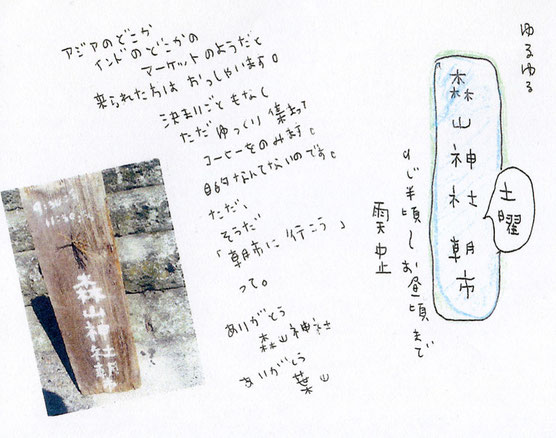 ゆるゆる
森山神社朝市
土曜
9じ半頃〜お昼頃まで
雨天中止
アジアのどこか
インドのどこかの
マーケットのようだと
来られた方は おっしゃいます。
決まりごともなく
ただ ゆっくり 集まって
コーヒーをのみます。
目的なんてないのです。
ただ、
そうだ
「朝市に 行こう」
って。
ありがとう
森山神社
ありがとう
葉山
森山神社朝市